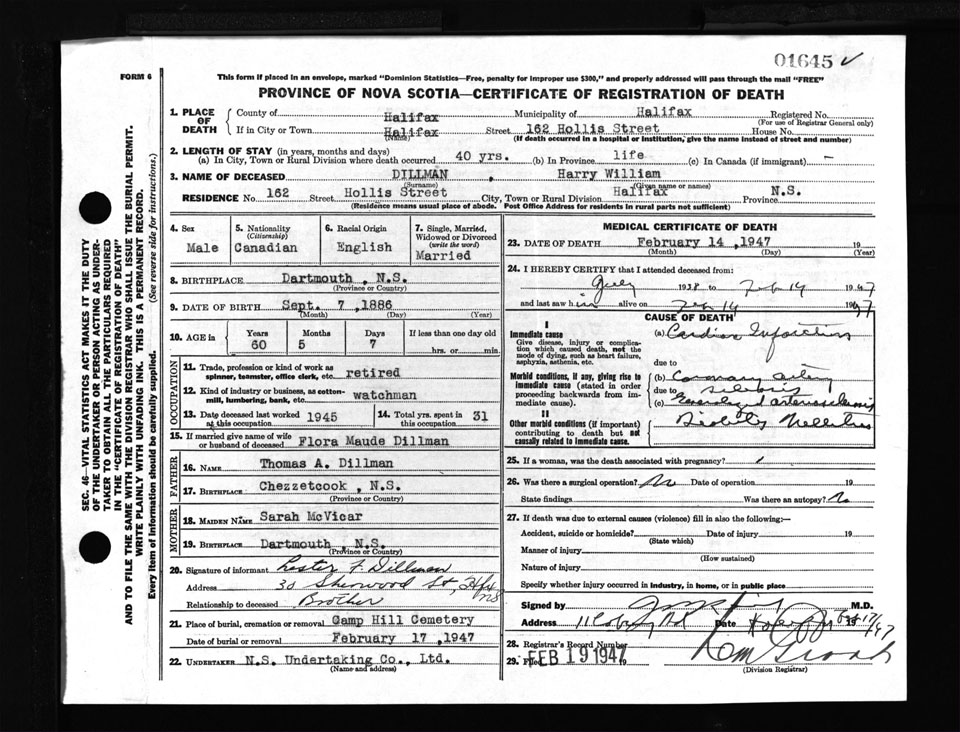 01645
FORM 6
This form if placed in an envelope, marked "Dominion Statistics—Free, penalty for improper use $300," and properly addressed will pass through the mail "FREE"
PROVINCE OF NOVA SCOTIA—CERTIFICATE OF REGISTRATION OF DEATH
1. PLACE OF DEATH
County of Halifax Municipality of Halifax Registered No.
(For use of Registrar General only)
If in City or Town Halifax Street 162 Hollis Street House No.
(Name) (If death occurred in a hospital or institution, give the name instead of street and number)
2. LENGTH OF STAY (in years, months and days)
(a) In City, Town or Rural Division where death occurred 40 yrs. (b) In Province life (c) In Canada (if immigrant) —
3. NAME OF DECEASED DILLMAN , Harry William
(Surname) (Given name or names)
RESIDENCE No. 162 Hollis Street Street City, Town or Rural Division Halifax Province N.S.
(Residence means usual place of abode. Post Office Address for residents in rural parts not sufficient)
4. Sex Male
5. Nationality (Citizenship) Canadian
6. Racial Origin English
7. Single, Married, Widowed or Divorced (write the word) Married
8. BIRTHPLACE Dartmouth , N.S.
(Province or Country)
9. DATE OF BIRTH Sept. 7 ,1886
(Month) (Day) (Year)
10. AGE in Years 60 Months 5 Days 7 If less than one day old hrs. or min.
OCCUPATION
11. Trade, profession or kind of work as spinner, teamster, office clerk, etc. retired
12. Kind of industry or business, as cotton-mill, lumbering, bank, etc. watchman
13. Date deceased last worked at this occupation 1945
14. Total yrs. spent in this occupation 31
15. If married give name of wife or husband of deceased Flora Maude Dillman
FATHER
16. NAME Thomas A. Dillman
17. BIRTHPLACE Chezzetcook , N.S.
(Province or Country)
MOTHER
18. MAIDEN NAME Sarah McVicar
19. BIRTHPLACE Dartmouth , N.S.
(Province or Country)
20. Signature of informant Lester F. Dillman
Address 30 Sherwood St, Hfx NS
Relationship to deceased Brother
21. Place of burial, cremation or removal Camp Hill Cemetery
Date of burial or removal February 17 ,1947
22. UNDERTAKER N.S. Undertaking Co., Ltd.
(Name and address)
MEDICAL CERTIFICATE OF DEATH
23. DATE OF DEATH February 14 ,1947 19
(Month) (Day) (Year)
24. I HEREBY CERTIFY that I attended deceased from:
July 1938 to Feb 14 1947
and last saw h im alive on Feb 14 1947
CAUSE OF DEATH
I
Immediate cause
Give disease, injury or complication which caused death, not the mode of dying, such as heart failure, asphyxia, asthenia, etc.
(a) Cardiac Infarction
due to
Morbid conditions, if any, giving rise to immediate cause (stated in order proceeding backwards from immediate cause).
(b) Coronary artery
due to sclerosis
(c) Generalized arteriosclerosis
II
Other morbid conditions (if important) contributing to death but not causally related to immediate cause.
Diabetes Mellitus
25. If a woman, was the death associated with pregnancy?
26. Was there a surgical operation? No Date of operation 19
State findings Was there an autopsy? No
27. If death was due to external causes (violence) fill in also the following:
Accident, suicide or homicide? Date of injury 19
(State which)
Manner of injury
(How sustained)
Nature of injury
Specify whether injury occurred in industry, in home, or in public place
Signed by M.D.
Address 11 Coburg Rd Date Feb 17/47 19
28. Registrar's Record Number
29. Filed FEB 19 1947
(Division Registrar)
SEC. 46—VITAL STATISTICS ACT MAKES IT THE DUTY
OF THE UNDERTAKER OR PERSON ACTING AS UNDER-
TAKER TO OBTAIN ALL THE PARTICULARS REQUIRED
IN THE "CERTIFICATE OF REGISTRATION OF DEATH"
AND TO FILE THE SAME WITH THE DIVISION REGISTRAR WHO SHALL ISSUE THE BURIAL PERMIT.
WRITE PLAINLY WITH UNFADING INK. THIS IS A PERMANENT RECORD.
Every item of information should be carefully supplied. (See reverse side for instructions.)